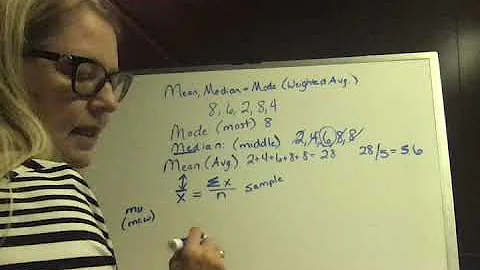 Mean, Median + Mode (Weighted Avg.)
8, 6, 2, 8, 4
Mode (most) 8
Median: (middle) 2, 4, 6, 8, 8
Mean (Avg.) 2+4+6+8+8 = 28 28/5 = 5.6
x̄ = Σx/n sample
mu
(mew)